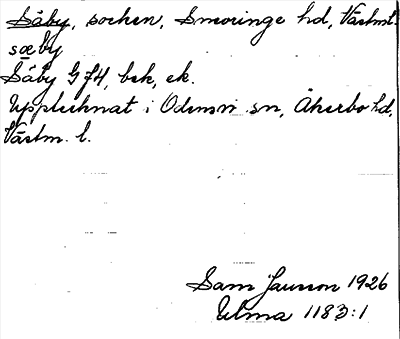 Säby, socken, Snevringe hd, Västml.
sæby
Säby G ZH, bek, ek.
Upptecknat i Odensvi sn, Åkerbo hd,
Västm. l.
Sam Jansson 1926
Ulma 1183:1